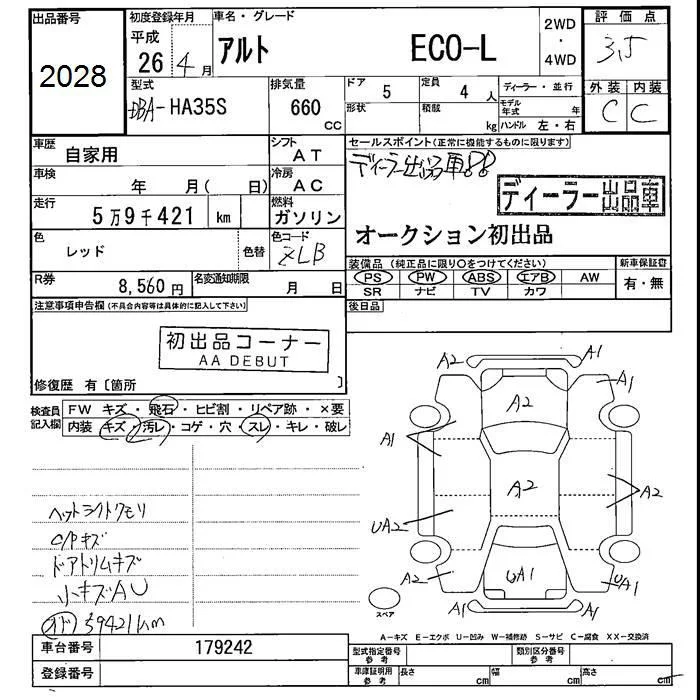 出品番号 初度登録年月 車名・グレード 2WD 評価点
平成 26 4 月 アルト ECO-L ・ 4WD 3.5
2028
型式 排気量 ドア 5 定員 4 人 ディーラー・並行 外装 内装
DBA-HA35S 660 cc 形状 積載 kg モデル年式 年 C C
ハンドル 左・右
車歴 自家用 シフト AT セールスポイント(正常に機能するものに限ります)
車検 年 月( 日) 冷房 AC ディーラー出品車
走行 5万9千421 km 燃料 ガソリン ディーラー出品車
色 レッド 色替 色コード ZLB オークション初出品
R券 8,560円 名変通知期限 月 日
装備品(純正品に限り○をつけてください) 新車保証書
PS PW ABS エアB AW 有・無
SR ナビ TV カワ
注意事項申告欄(不具合内容等は具体的に記入して下さい) 後日品
初出品コーナー
AA DEBUT
修復歴 有〔箇所 〕
検査員記入欄 FW キズ・飛石・ヒビ割・リペア跡・×要
内装 キズ・汚レ・コゲ・穴・スレ・キレ・破レ
A2 A1
A1
A2
A1
A2 A2
UA2
A2 UA1 UA1
A1 A1
スペア
ヘットライトクモリ
C/Pキズ
ドアトリムキズ
小キズAU
オド 59421km
A-キズ E-エクボ U-凹み W-補修跡 S-サビ C-腐食 XX-交換済
車台番号 179242 型式指定番号 参考 類別区分番号 参考
登録番号 車庫証明用 参考 長さ cm 幅 cm 高さ cm